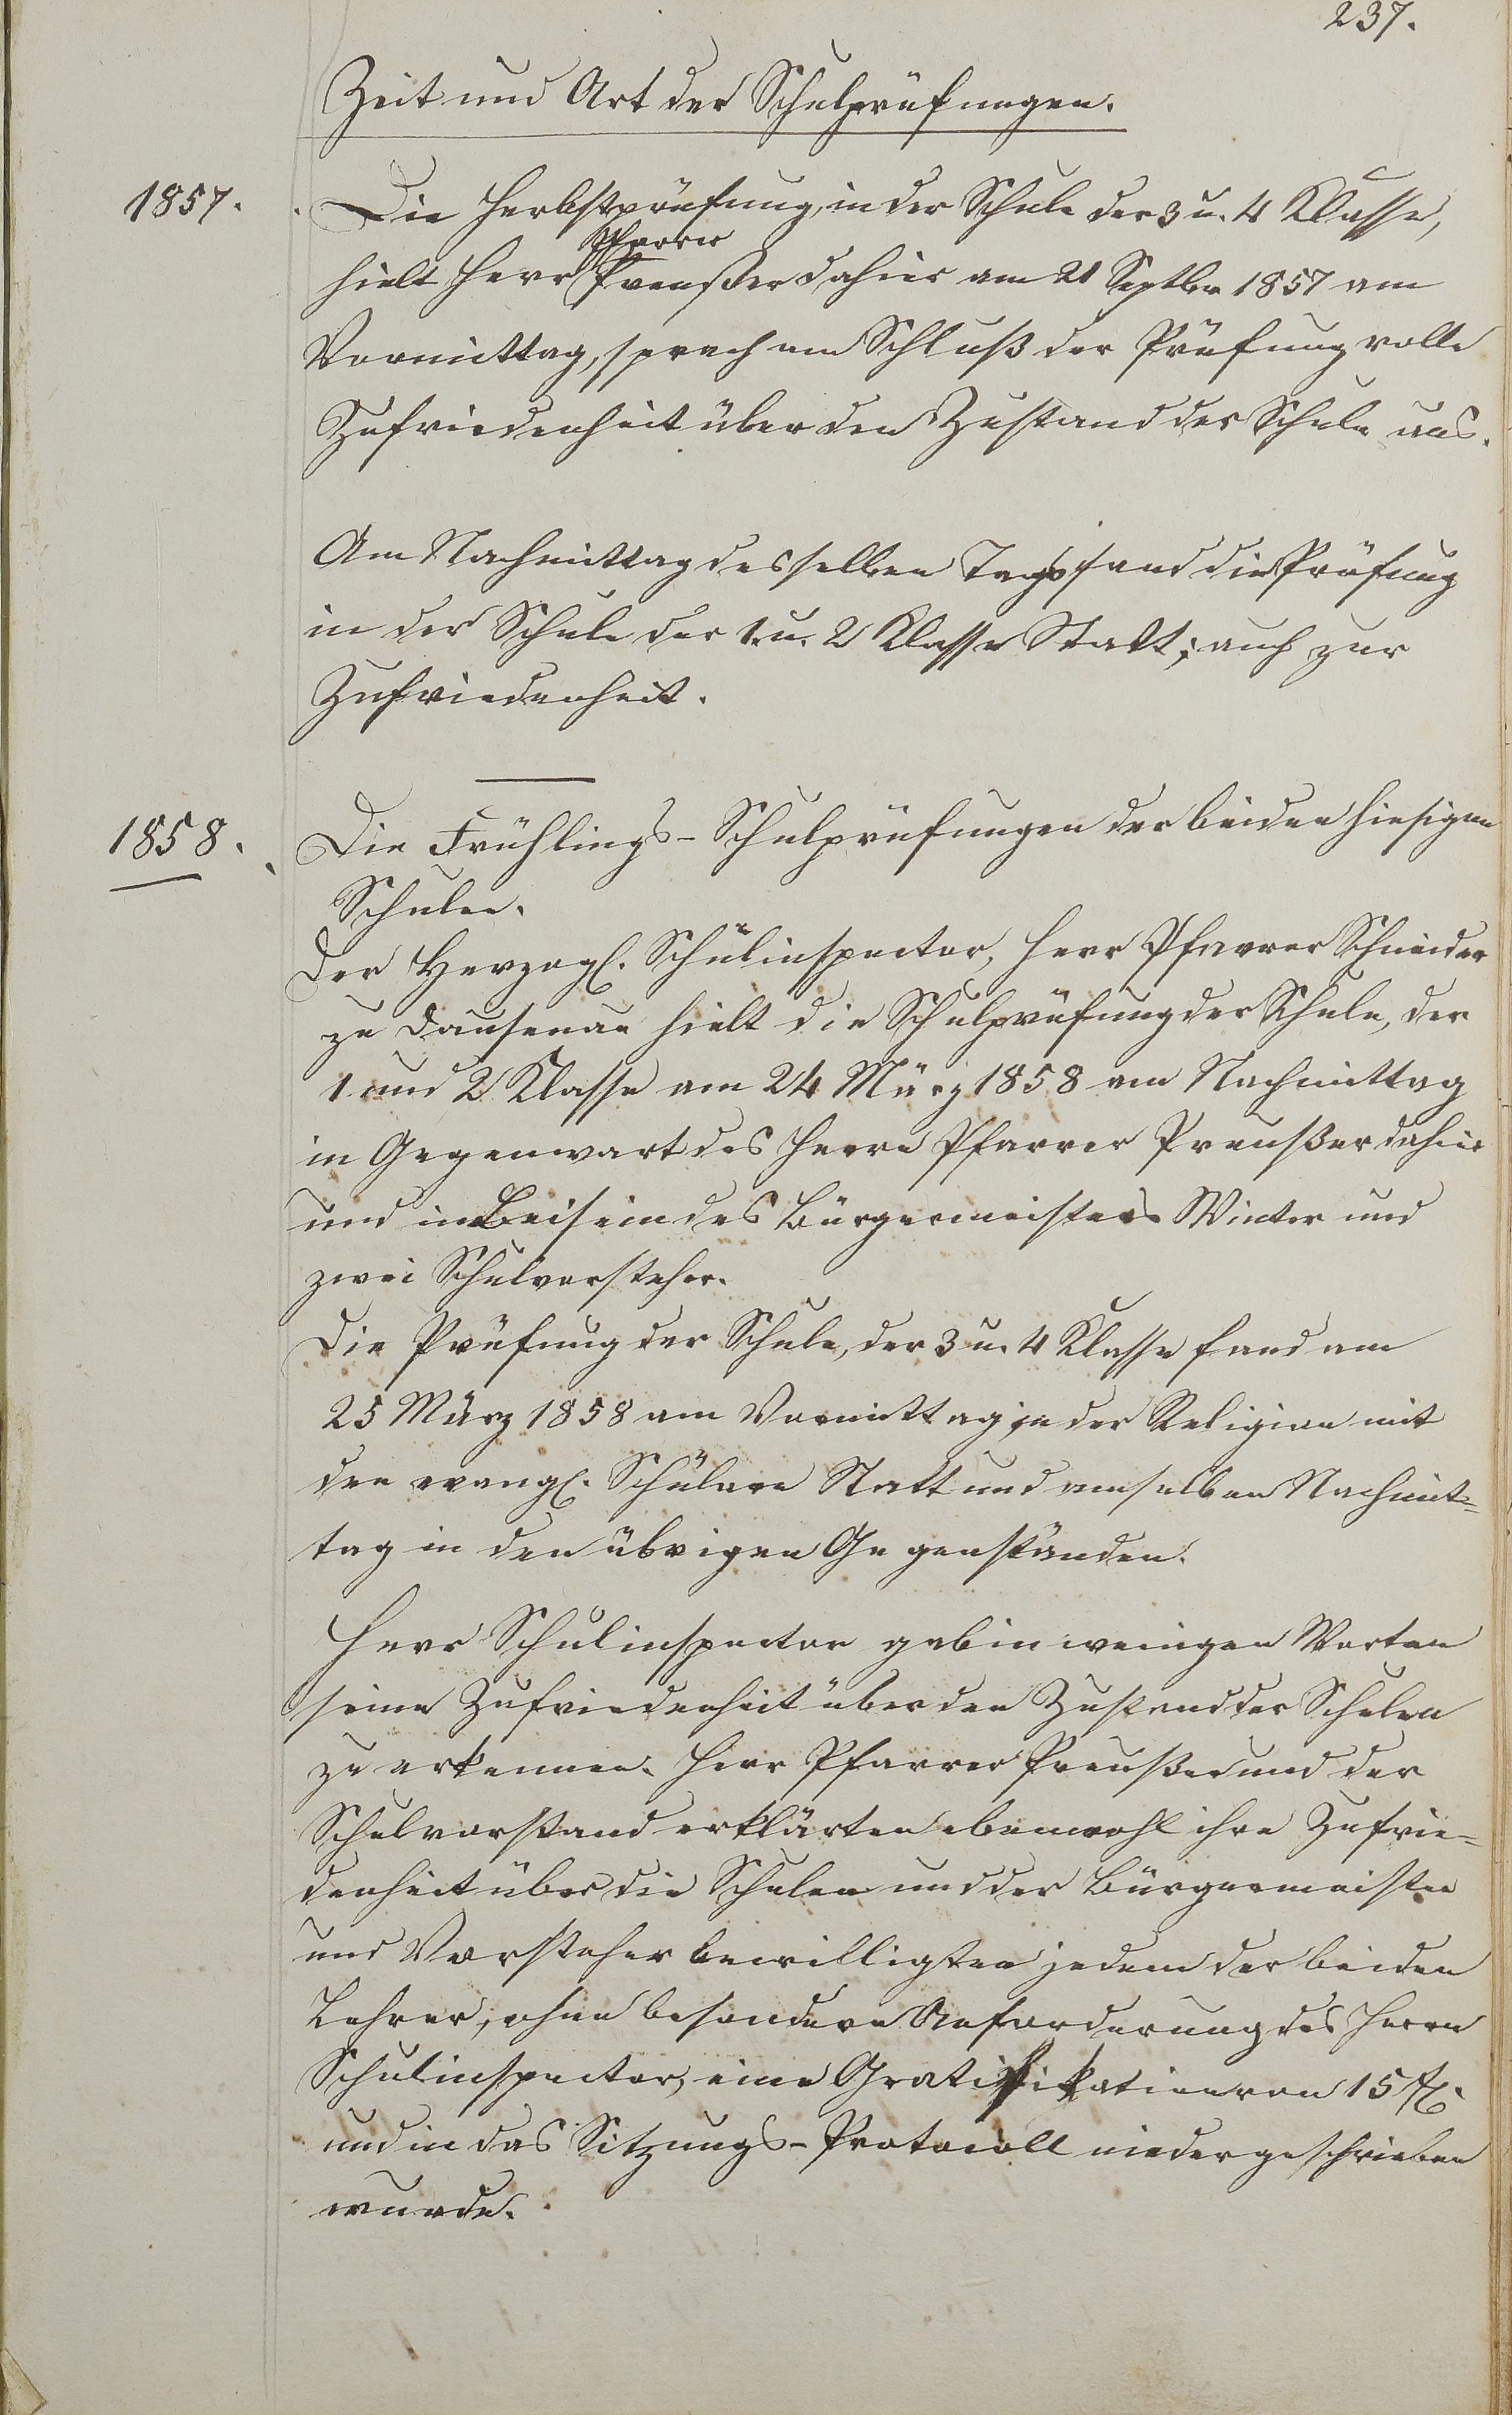 237.
Zeit und Art der Schulprüfungen.
1857.
Die Herbstprüfung, in der Schule der 3 u. 4 Klasse,
Pfarrer
hielt Herr Preußer dahier am 21 Septbr 1857 am
Vormittag, sprach am Schluß der Prüfung volle
Zufriedenheit über den Zustand der Schule aus.
Am Nachmittag desselben Tags fand die Prüfung
in der Schule der 1. u. 2 Klasse Statt; auch zur
Zufriedenheit.
1858.
Die Frühlings-Schulprüfungen der beiden hiesigen
Schulen.
Der Herzogl. Schulinspector, Herr Pfarrer Schneider
zu Dausenau hielt die Schulprüfung der Schule, der
1 und 2 Klasse am 24 März 1858 am Nachmittag
in Gegenwart des Herrn Pfarrer Preußer dahier
und im Beisein des Bürgermeisters Winter und
zwei Schulvorsteher.
Die Prüfung der Schule, der 3 u. 4 Klasse fand am
25 März 1858 am Vormittag in der Religion mit
den evangl. Schülern Statt und am selben Nachmit=
tag in den übrigen Gegenständen.
Herr Schulinspector gab in wenigen Worten
seine Zufriedenheit über den Zustand der Schulen
zu erkennen. Herr Pfarrer Preußer und der
Schulvorstand erklärten ebenwohl ihre Zufrie=
denheit über die Schulen und der Bürgermeister
und Vorsteher bewilligten jedem der beiden
Lehrer, ohne besondere Anforderung des Herrn
Schulinspector, eine Gratifikation von 15 fl.
und in das Sitzungs-Protocoll niedergeschrieben
wurde.